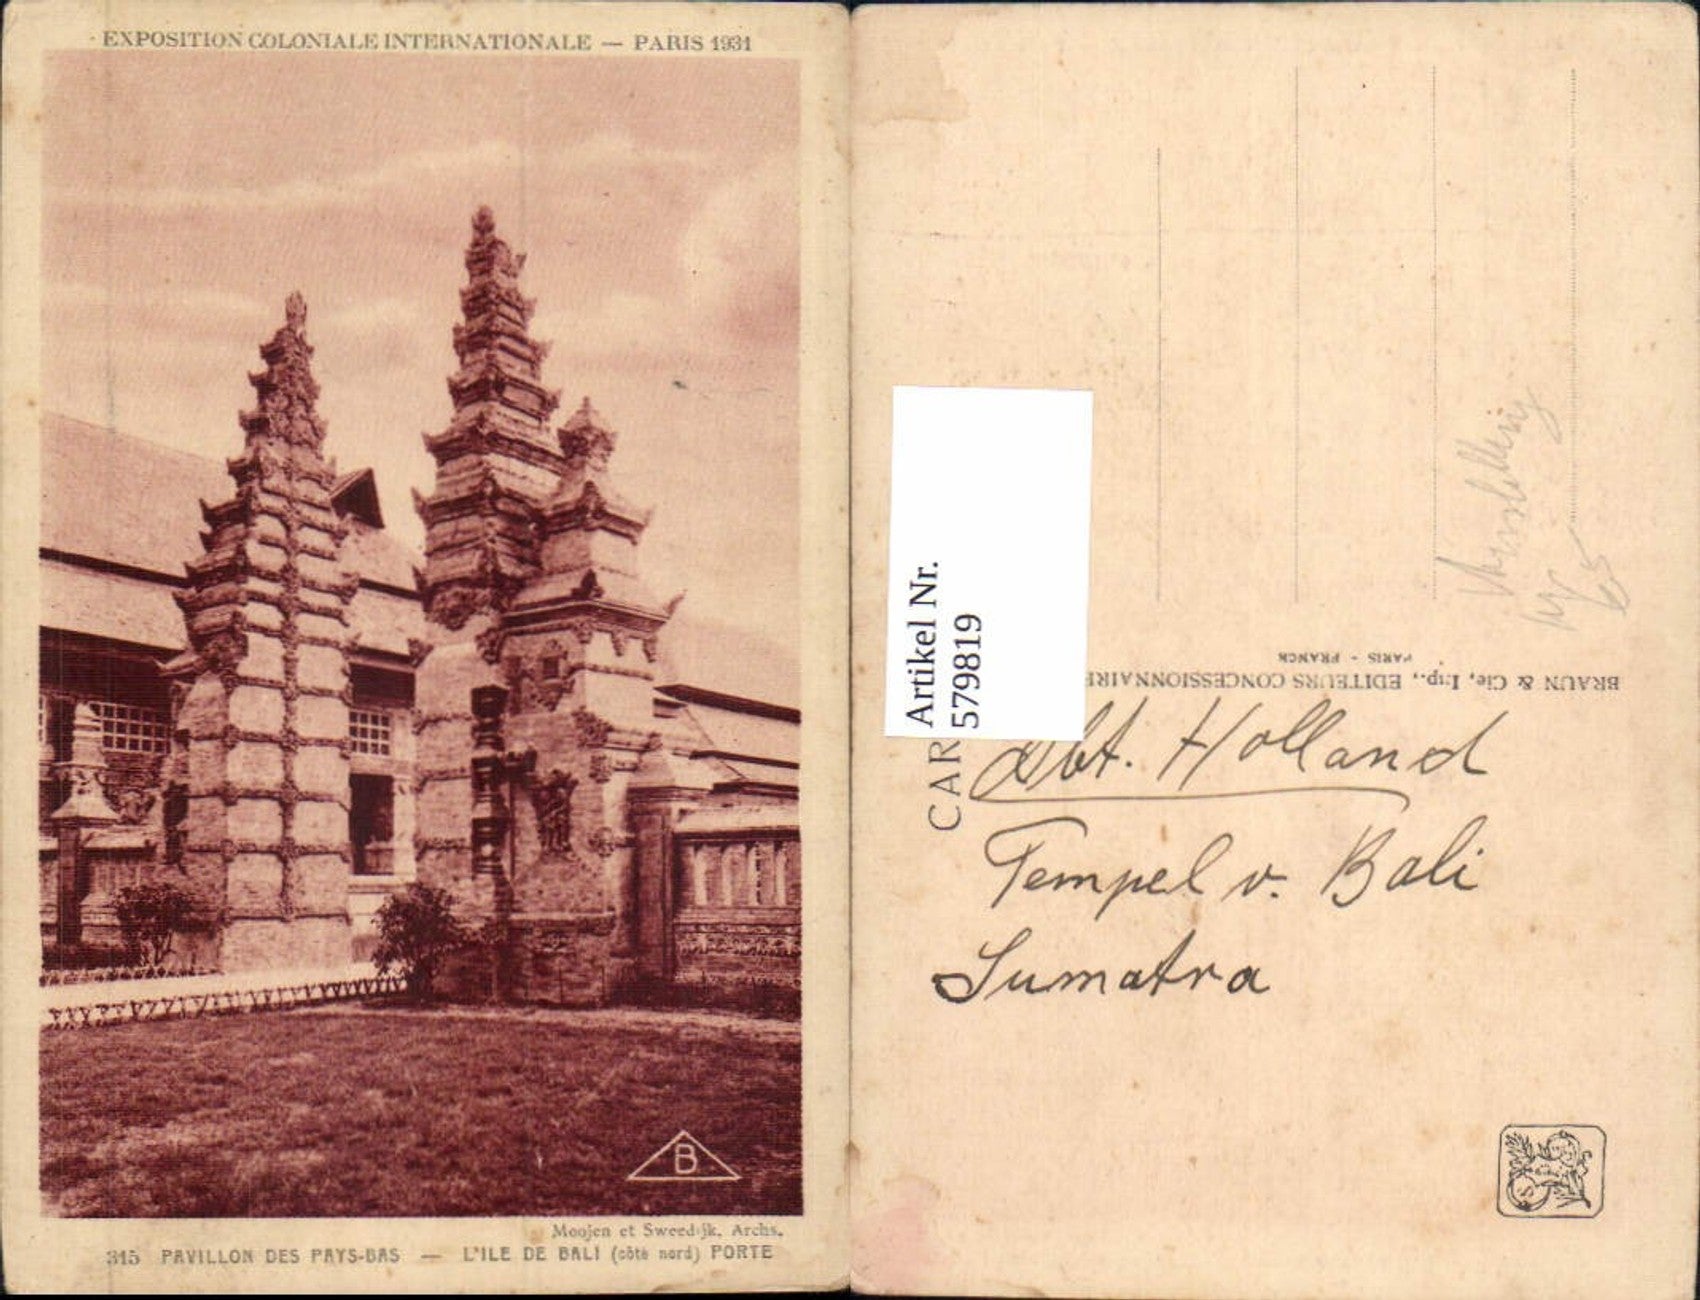 EXPOSITION COLONIALE INTERNATIONALE — PARIS 1931
B
Moojen et Sweedijk, Archs.
315 PAVILLON DES PAYS-BAS — L'ILE DE BALI (côté nord) PORTE
Artikel Nr.
5798819
CAR
BRAUN & Cie, Imp., EDITEURS CONCESSIONNAIRE
PARIS - FRANCE
Abt. Holland
Tempel v. Bali
Sumatra
65